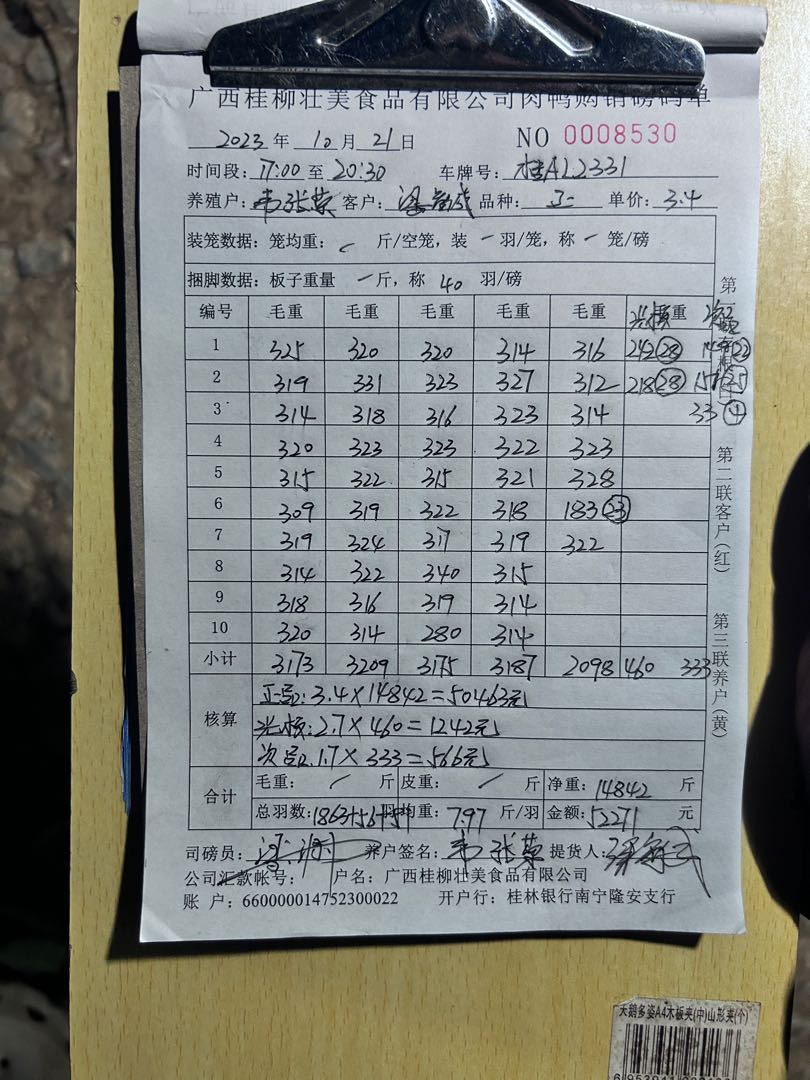 广西桂柳壮美食品有限公司肉鸭购销磅码单
2023 年 10 月 21 日 NO 0008530
时间段: 17:00 至 20:30 车牌号: 桂AL2331
养殖户: 韦张 客户: 梁 品种: 正 单价: 3.4
装笼数据: 笼均重: 斤/空笼, 装 一 羽/笼, 称 一 笼/磅
捆脚数据: 板子重量 一 斤, 称 40 羽/磅
编号 毛重 毛重 毛重 毛重 毛重 重
1 325 320 320 314 316 242 28 22
2 319 331 323 327 312 218 28
3 314 318 316 323 314 33 4
4 320 323 323 322 323
5 315 322 315 321 328
6 309 319 322 318 183 23
7 319 324 317 319 322
8 314 322 340 315
9 318 316 319 314
10 320 314 280 314
小计 3173 3209 3175 3187 2098 460 333
核算
正品: 3.4×14842=50463元
2.7×460=1242元
次品: 1.7×333=566元
合计
毛重: 斤 皮重: 斤 净重: 14842 斤
总羽数: 1863+56+51 羽均重: 7.97 斤/羽 金额: 52271 元
司磅员: 养户签名: 韦张 提货人:
公司汇款帐号: 户名: 广西桂柳壮美食品有限公司
账 户: 660000014752300022 开户行: 桂林银行南宁隆安支行
第二联客户(红)
第三联养户(黄)
天鹅多姿A4木板夹(中)山形夹(个)